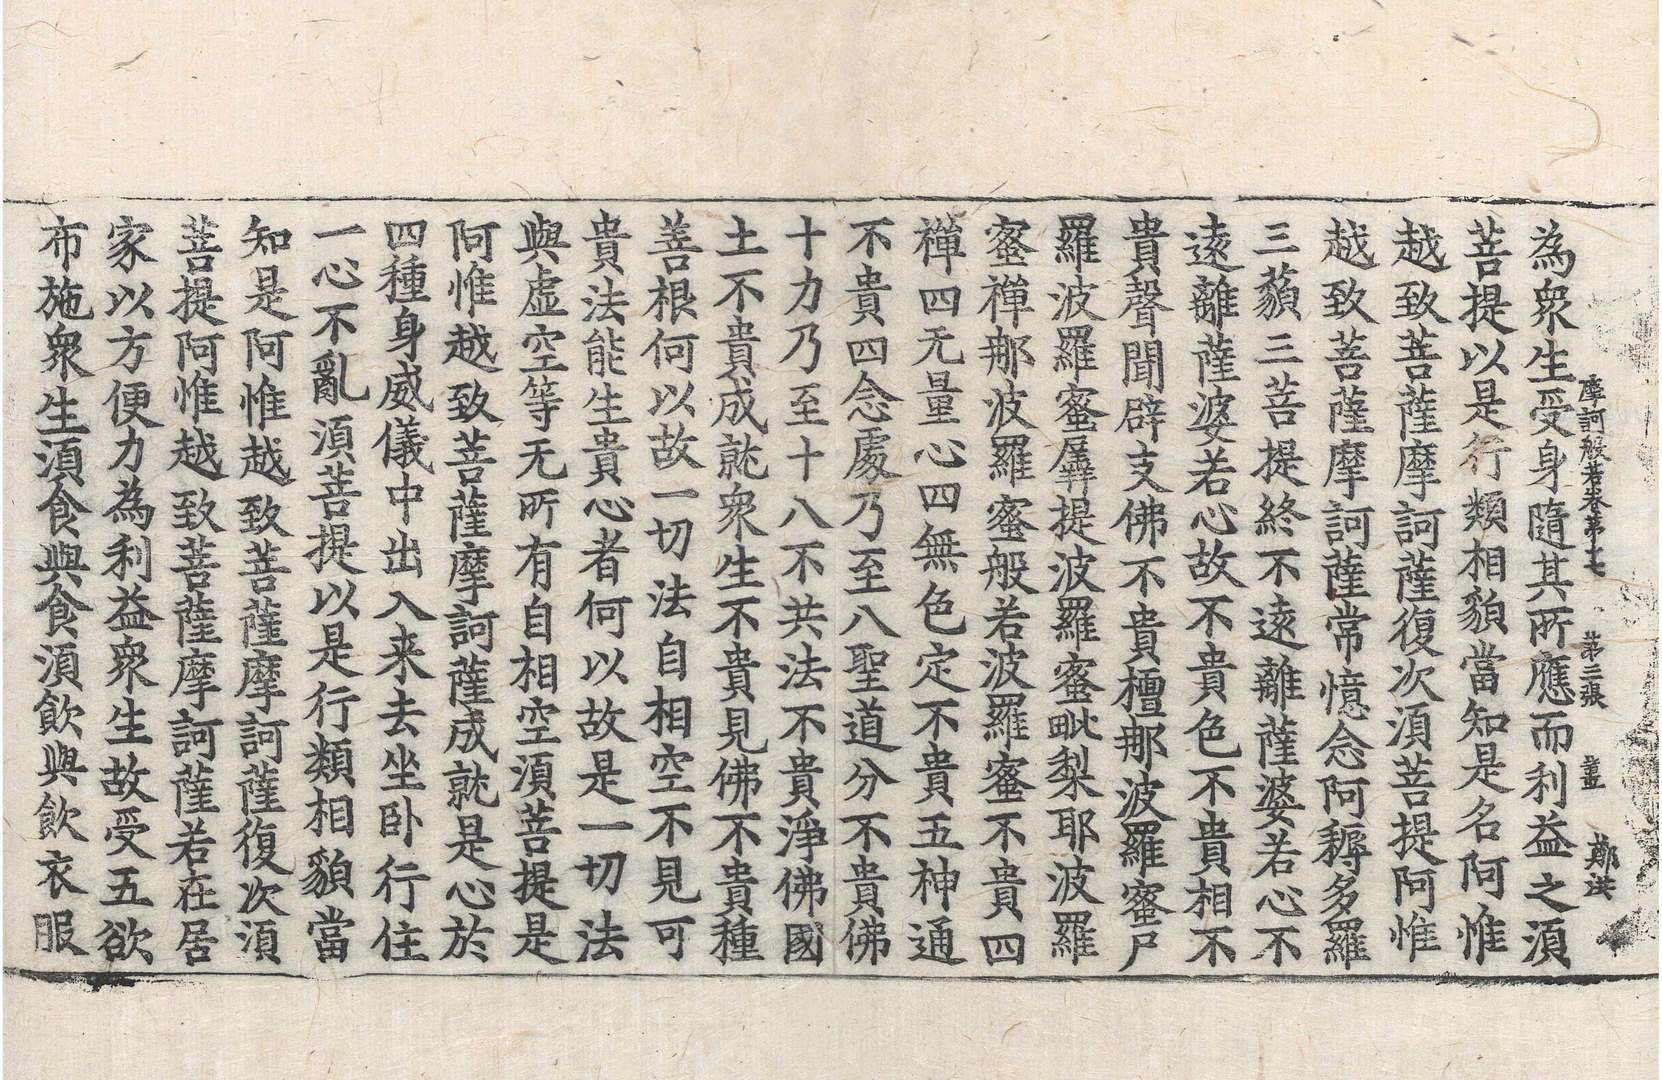 摩訶般若卷第十七　第三張　薑　鄭洪
為衆生受身隨其所應而利益之須
菩提以是行類相貌當知是名阿惟
越致菩薩摩訶薩復次須菩提阿惟
越致菩薩摩訶薩常憶念阿耨多羅
三藐三菩提終不遠離薩婆若心不
遠離薩婆若心故不貴色不貴相不
貴聲聞辟支佛不貴檀那波羅蜜尸
羅波羅蜜羼提波羅蜜毗梨耶波羅
蜜禪那波羅蜜般若波羅蜜不貴四
禪四无量心四無色定不貴五神通
不貴四念處乃至八聖道分不貴佛
十力乃至十八不共法不貴淨佛國
土不貴成就衆生不貴見佛不貴種
善根何以故一切法自相空不見可
貴法能生貴心者何以故是一切法
與虛空等无所有自相空須菩提是
阿惟越致菩薩摩訶薩成就是心於
四種身威儀中出入来去坐卧行住
一心不亂須菩提以是行類相貌當
知是阿惟越致菩薩摩訶薩復次須
菩提阿惟越致菩薩摩訶薩若在居
家以方便力為利益衆生故受五欲
布施衆生須食與食須飲與飲衣服